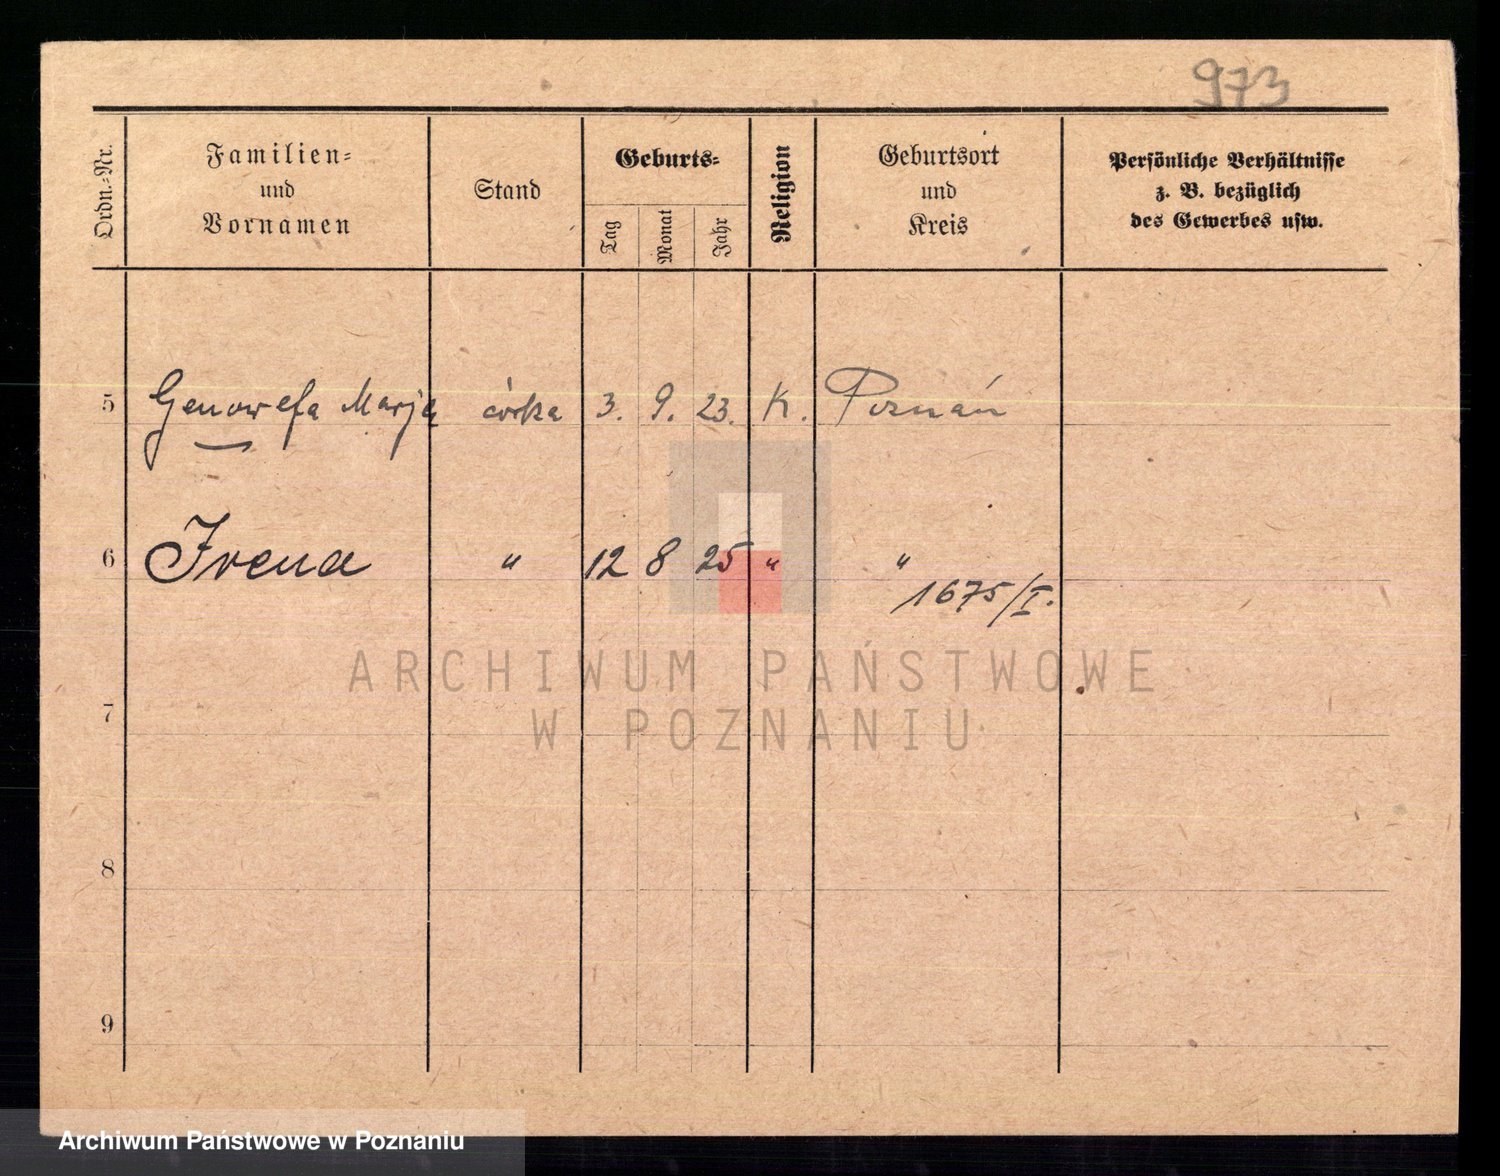 973
Ordn.-Nr.
Familien-
und
Vornamen
Stand
Geburts-
Tag
Monat
Jahr
Religion
Geburtsort
und
Kreis
Persönliche Verhältnisse
z. B. bezüglich
des Gewerbes usw.
5 Genowefa Marja córka 3. 9. 23. K. Poznań
6 Irena " 12 8 25 " "
1675/I.
ARCHIWUM PAŃSTWOWE
W POZNANIU
7
8
9
Archiwum Państwowe w Poznaniu